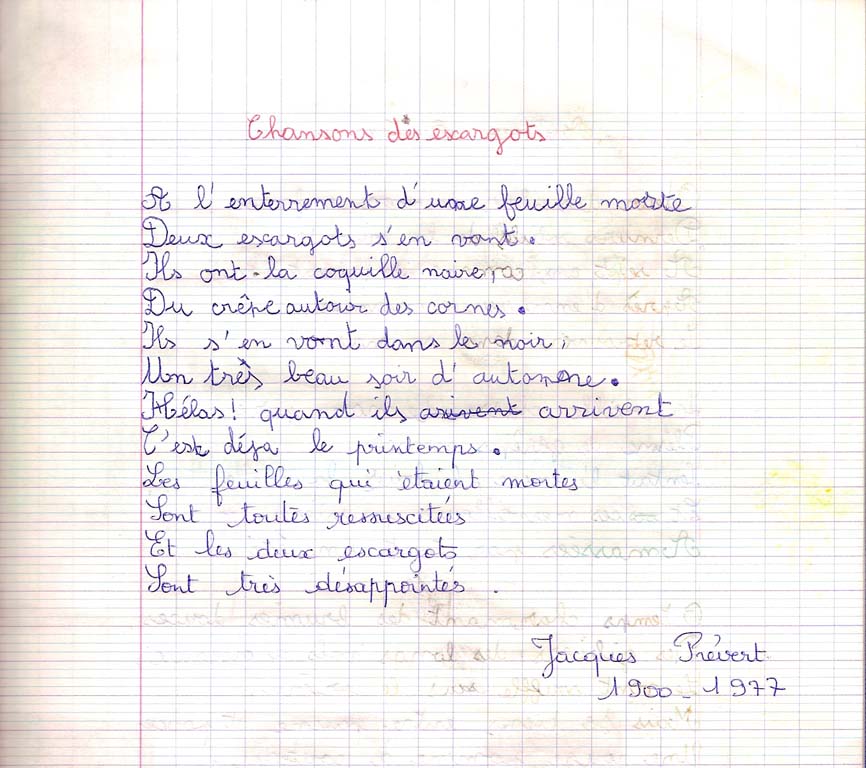 Chansons des escargots
A l'enterrement d'une feuille morte
Deux escargots s'en vont.
Ils ont la coquille noire,
Du crêpe autour des cornes.
Ils s'en vont dans le noir,
Un très beau soir d'automne.
Hélas! quand ils arivent arrivent
C'est déja le printemps.
Les feuilles qui étaient mortes
Sont toutes ressuscitées
Et les deux escargots
Sont très désappointés.
Jacques Prévert
1900-1977